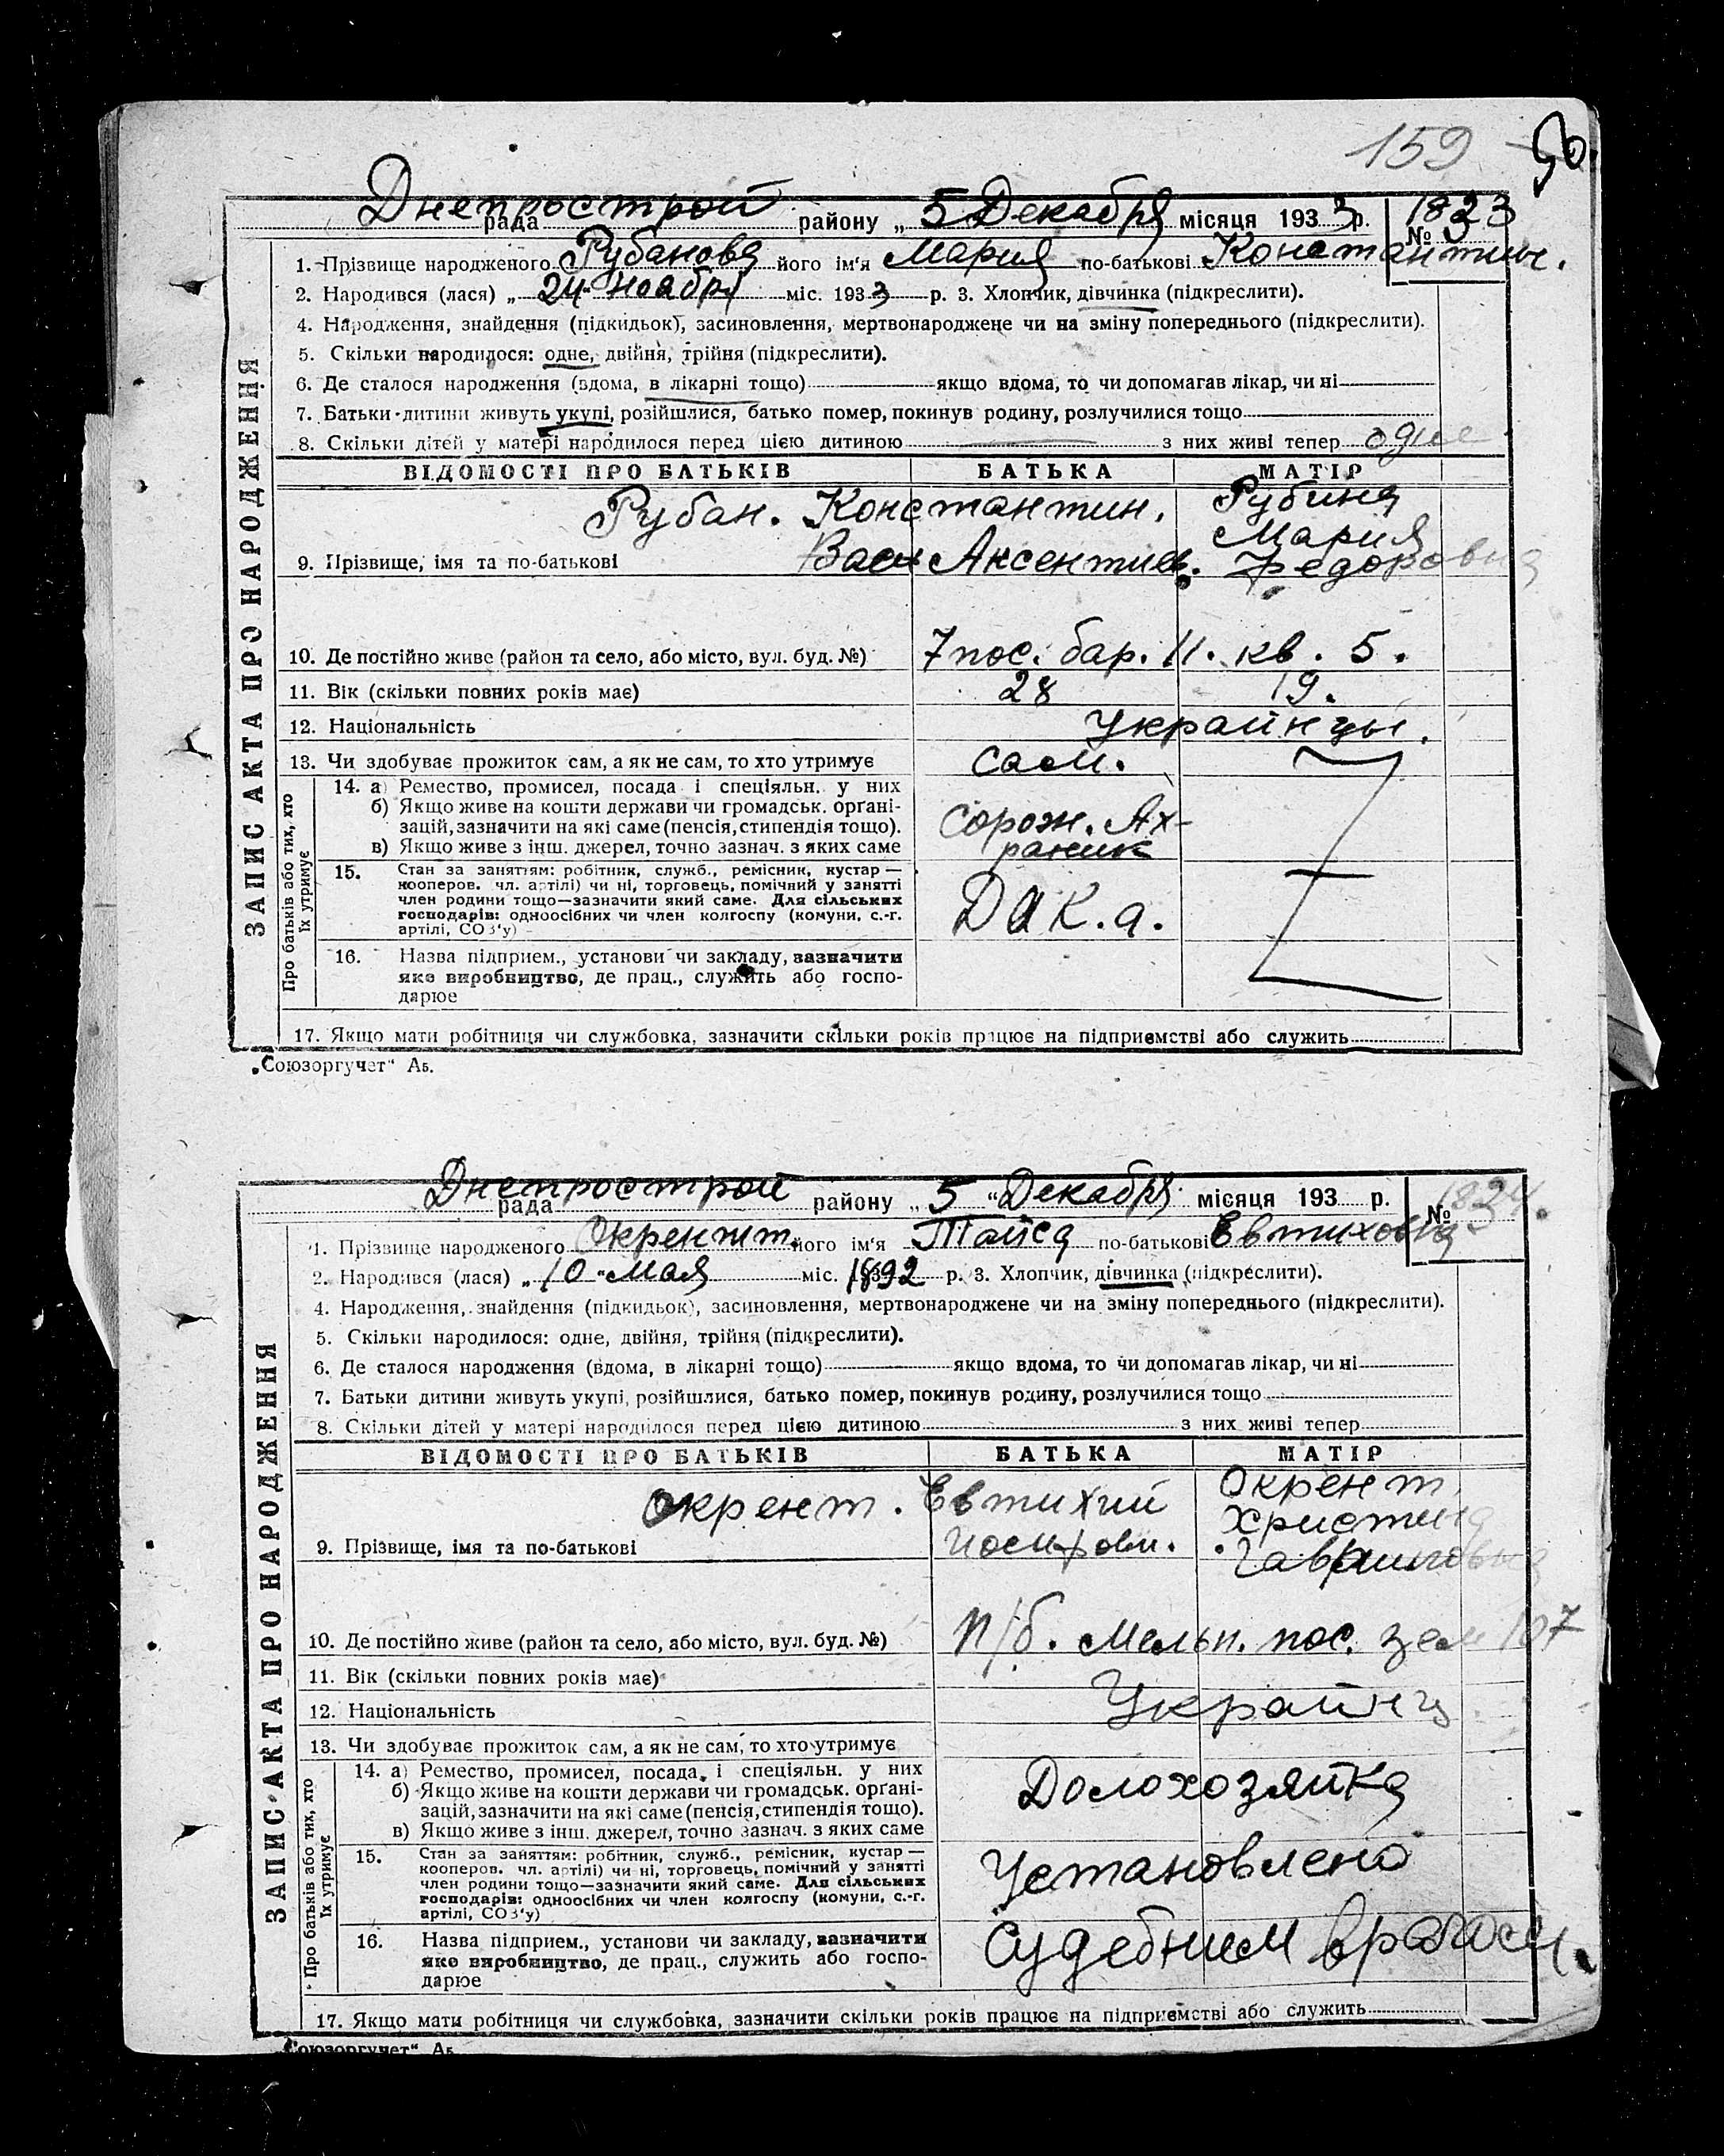 159 90.
Днепрострой
рада району „ 5 Декабря місяця 1933 р. № 1823
1. Прізвище народженого Рубанова його ім'я Мария по-батькові Константин.
2. Народився (лася) „ 24 " Ноября міс. 1933 р. 3. Хлопчик, дівчинка (підкреслити).
4. Народження, знайдення (підкидьок), засиновлення, мертвонароджене чи на зміну попереднього (підкреслити).
5. Скільки народилося: одне, двійня, трійня (підкреслити).
6. Де сталося народження (вдома, в лікарні тощо) якщо вдома, то чи допомагав лікар, чи ні
7. Батьки дитини живуть укупі, розійшлися, батько помер, покинув родину, розлучилися тощо
8. Скільки дітей у матері народилося перед цією дитиною — з них живі тепер одне
ЗАПИС АКТА ПРО НАРОДЖЕННЯ
ВІДОМОСТІ ПРО БАТЬКІВ БАТЬКА МАТІР
Рубан. Константин. Рубина
Мария
9. Прізвище, імя та по-батькові Аксентиев. Федоровна
10. Де постійно живе (район та село, або місто, вул. буд. №) 7 пос. бар. 11. кв. 5.
11. Вік (скільки повних років має) 28 19.
12. Національність Украинцы.
13. Чи здобуває прожиток сам, а як не сам, то хто утримує сам.
Про батьків або тих, хто
їх утримує
14. а) Ремество, промисел, посада і спеціяльн. у них
б) Якщо живе на кошти держави чи громадськ. орґані-
зацій, зазначити на які саме (пенсія, стипендія тощо). Сорож. Ах-
в) Якщо живе з інш. джерел, точно зазнач. з яких саме раник
15. Стан за заняттям: робітник, служб., ремісник, кустар —
кооперов. чл. артілі) чи ні, торговець, помічний у занятті
член родини тощо—зазначити який саме. Для сільських
господарів: одноосібних чи член колгоспу (комуни, с.-г.
артілі, СОЗ'у) ДАК.а.
16. Назва підприем., установи чи закладу, зазначити
яке виробництво, де прац., служить або госпо-
дарює
17. Якщо мати робітниця чи службовка, зазначити скільки років працює на підприємстві або служить
„Союзоргучет" Аб.
Днепрострой
рада району „ 5 " Декабря місяця 193 р. № 1824.
1. Прізвище народженого Окрент його ім'я Таиса по-батькові Евтиховна
2. Народився (лася) „ 10 " Мая міс. 1892 р. 3. Хлопчик, дівчинка (підкреслити).
4. Народження, знайдення (підкидьок), засиновлення, мертвонароджене чи на зміну попереднього (підкреслити).
5. Скільки народилося: одне, двійня, трійня (підкреслити).
6. Де сталося народження (вдома, в лікарні тощо) якщо вдома, то чи допомагав лікар, чи ні
7. Батьки дитини живуть укупі, розійшлися, батько помер, покинув родину, розлучилися тощо
8. Скільки дітей у матері народилося перед цією дитиною з них живі тепер
ЗАПИС АКТА ПРО НАРОДЖЕННЯ
ВІДОМОСТІ ПРО БАТЬКІВ БАТЬКА МАТІР
Окрент. Евтихий Окрент
Христина
9. Прізвище, імя та по-батькові Иосифови. Гавриловна
10. Де постійно живе (район та село, або місто, вул. буд. №) п/б. Мельн. пос. зем 107
11. Вік (скільки повних років має)
12. Національність Украинц
13. Чи здобуває прожиток сам, а як не сам, то хто утримує
Про батьків або тих, хто
їх утримує
14. а) Ремество, промисел, посада і спеціяльн. у них
б) Якщо живе на кошти держави чи громадськ. орґані- Домохозяйка
зацій, зазначити на які саме (пенсія, стипендія тощо).
в) Якщо живе з інш. джерел, точно зазнач. з яких саме
15. Стан за заняттям: робітник, служб., ремісник, кустар —
кооперов. чл. артілі) чи ні, торговець, помічний у занятті Установлено
член родини тощо—зазначити який саме. Для сільських
господарів: одноосібних чи член колгоспу (комуни, с.-г.
артілі, СОЗ'у)
16. Назва підприем., установи чи закладу, зазначити Судебным врачом.
яке виробництво, де прац., служить або госпо-
дарює
17. Якщо мати робітниця чи службовка, зазначити скільки років працює на підприємстві або служить
„Союзоргучет" Аб.